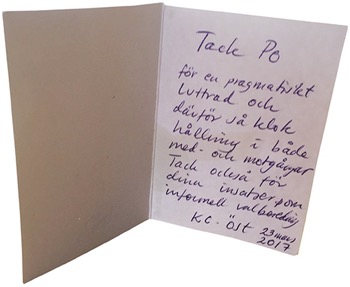 Tack Po
för en pragmatiskt
luttrad och
därför så klok
hållning i både
med- och motgångar
Tack också för
dina insatser som
informell valberedning
KC-Öst 23 mars
2017